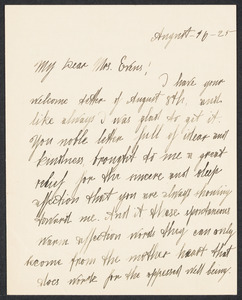 August 16-25
My Dear Mrs. Evans!
I have your
welcome letter of August 8th. and
like always I was glad to get it.
You noble letter full of idear and
kindness brought to me a great
relief for the sincere and deep
affection that you are always showing
toward me. And it those spontaneous
warm affection words they can only
become from the mother heart that
does work for the oppressed well being.